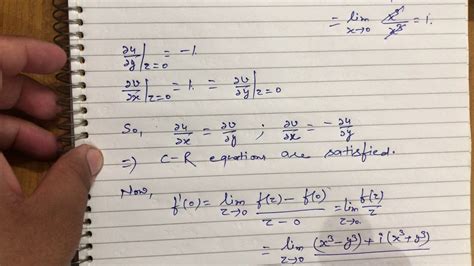 = lim x→0 x³/x³ = 1.
∂u/∂y |z=0 = -1.
∂v/∂x |z=0 = 1. = ∂v/∂y |z=0
So, ∂u/∂x = ∂v/∂y ; ∂v/∂x = -∂u/∂y
⇒ C-R equations are satisfied.
Now,
f'(0) = lim z→0 f(z) - f(0) / z - 0 = lim z→0 f(z)/z
= lim z→0 (x³-y³) + i(x³+y³)